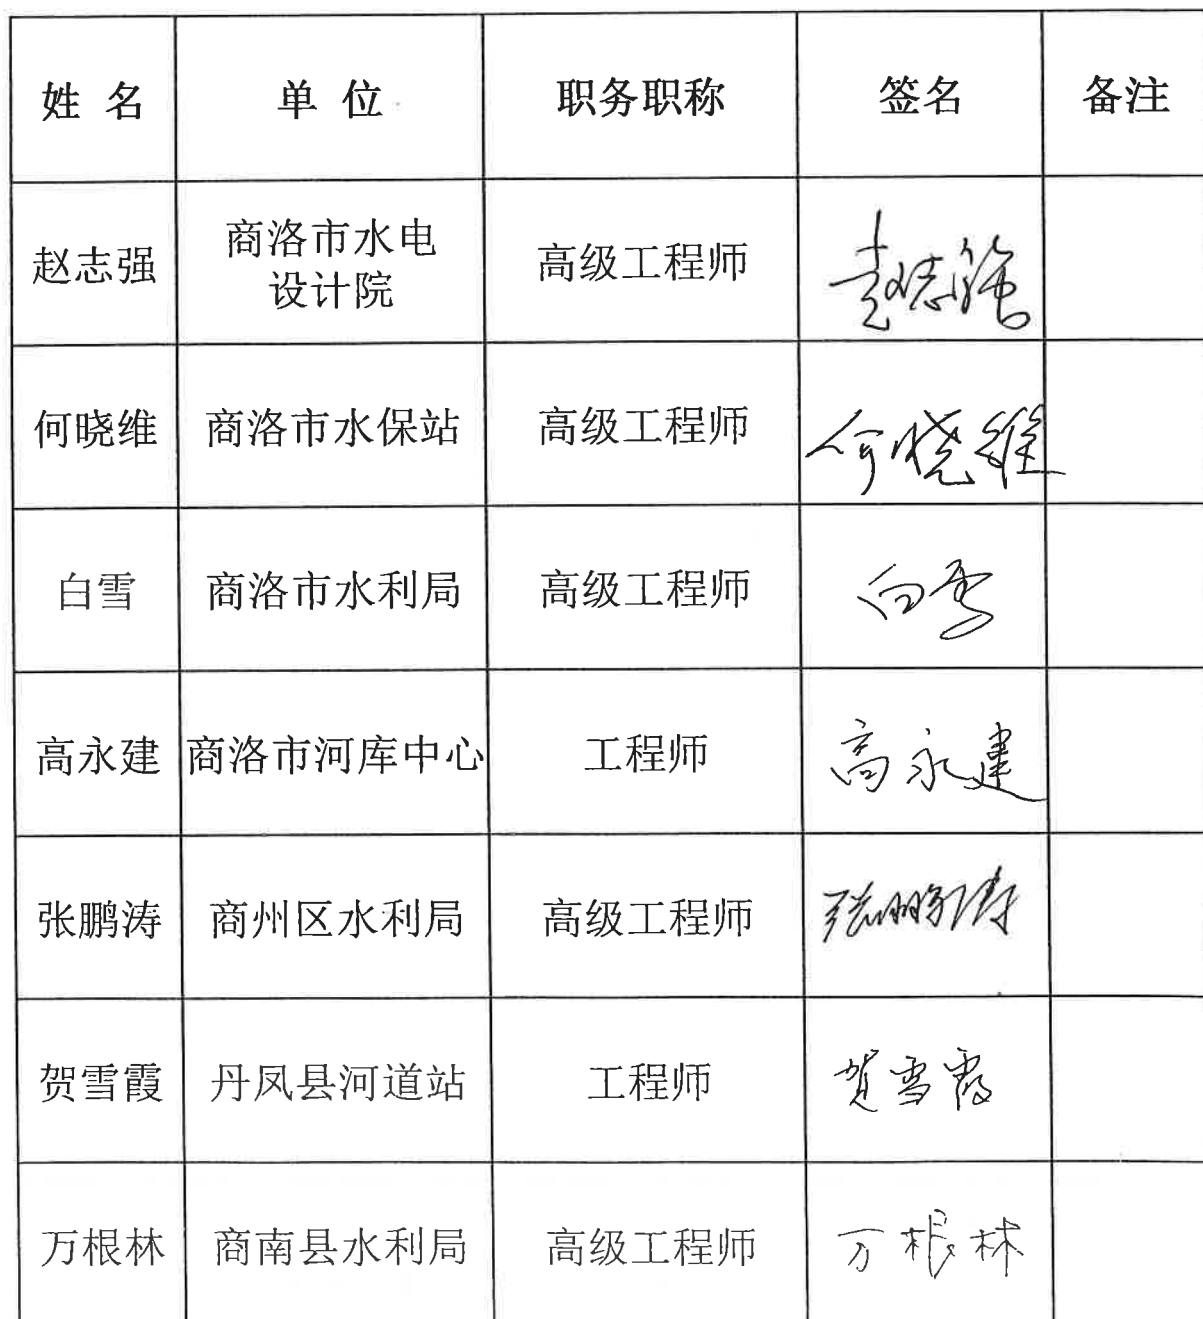 姓 名 单 位 职务职称 签名 备注
赵志强 商洛市水电 高级工程师 赵志强
设计院
何晓维 商洛市水保站 高级工程师 何晓维
白雪 商洛市水利局 高级工程师 白雪
高永建 商洛市河库中心 工程师 高永建
张鹏涛 商州区水利局 高级工程师 张鹏涛
贺雪霞 丹凤县河道站 工程师 贺雪霞
万根林 商南县水利局 高级工程师 万根林